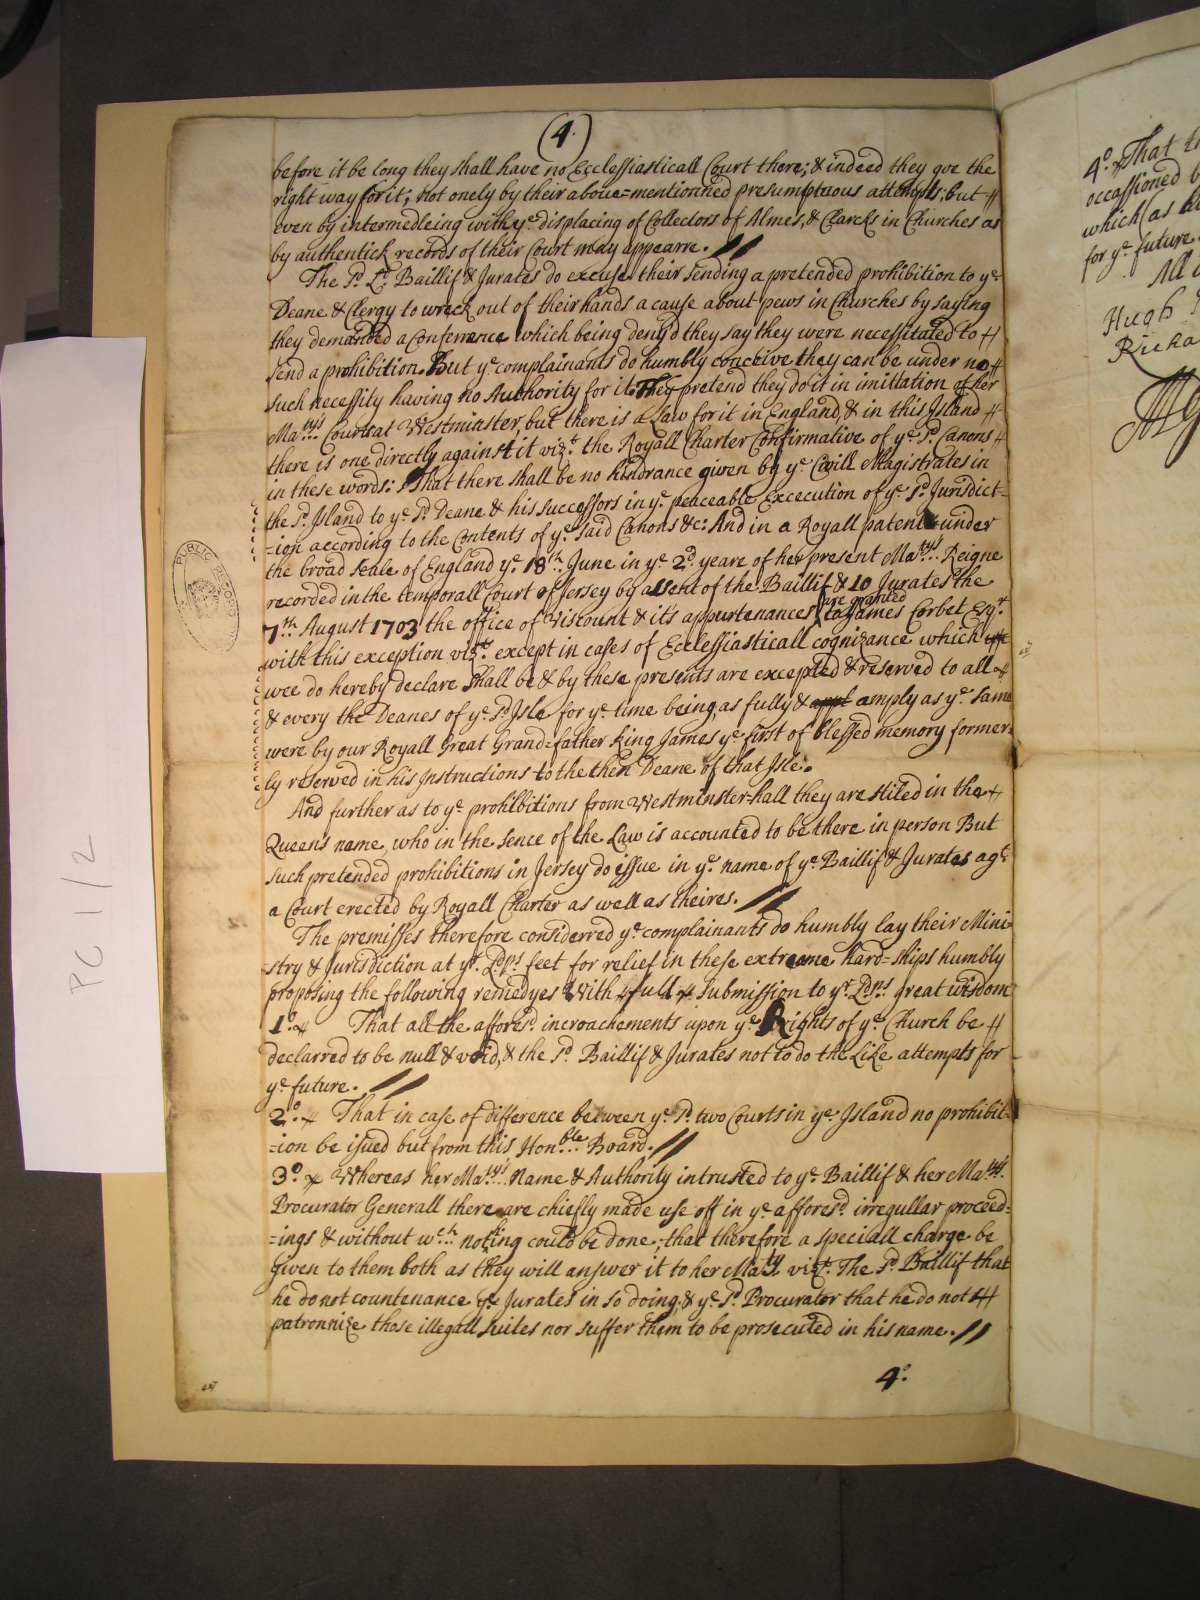 (4.)
before it be long they shall have no Ecclessiasticall Court there; & indeed they goe the
right way for it; not onely by their above=mentionned presumptuous attempts, but
even by intermedleing with ye displacing of Collectors of Almes, & Clarcks in Churches as
by authentick records of their Court may appeare. //
The Sd. Lt. Baillif & Jurates do excuse their sending a pretended prohibition to ye
Deane & Clergy to wreck out of their hands a cause about pews in Churches by saying
they demanded a Conferrance which being deny'd they say they were necessitated to
send a prohibition But ye complainants do humbly conceive they can be under no
such necessity having no Authority for it. They pretend they do it in imittation of her
Matys Courts at Westminster, but there is a Law for it in England, & in this Island
there is one directly against it vizt. the Royall Charter Confirmative of ye Sd. Canons
in these words: That there shall be no hindrance given by ye Civill Magistrates in
the Sd. Island to ye Sd. Deane & his successors in ye peaceable Excecution of ye Sd Jurisdict=
=ion according to the Contents of ye Said Canons &c: And in a Royall patent under
the broad seale of England ye 18th June in ye 2d yeare of her present Matys Reigne
recorded in the temporall Court of Jersey by assent of the Baillif & 10 Jurates the
are granted
7th August 1703 the office of Viscount & its appurtenances to James Corbet Esqr.
with this exception vizt. except in cases of Ecclessiasticall cognizance which
wee do hereby declare shall be & by these presents are excepted & reserved to all
& every the Deanes of ye Sd Isle for ye time being, as fully & appl amply as ye same
were by our Royall Great Grand=father King James ye first of blessed memory former
ly reserved in his Instructions to the then Deane of that Isle.
And further as to ye prohibitions from Westminster-hall they are stiled in the
Queens name, who in the sence of the Law is accounted to be there in person But
such pretended prohibitions in Jersey do issue in ye name of ye Baillif & Jurates agt
a Court erected by Royall Charter as well as theires. //
The premisses therefore considerred ye complainants do humbly lay their Mini
=stry & Jurisdiction at yr. Ldps feet for relief in these extreame hard=ships humbly
proposing the following remedyes With full submission to yr Ldps great wisdom
1o. That all the afforesd. incroachements upon ye Rights of ye Church be
declarred to be null & void, & the Sd. Baillif & Jurates not to do the Like attempts for
ye future. //
2o. That in case of difference between ye Sd. two Courts in ye Island no prohibit=
=ion be issued but from this Honble Board. //
3o Whereas her Matys Name & Authority intrusted to ye Baillif & her Matys
Procurator Generall there are chiefly made use off in ye afforesd. irregullar proceed=
=ings & without wch nothing could be done; that therefore a speciall charge be
given to them both as they will answer it to her Maty. vizt. The Sd Baillif that
he do not countenance ye Jurates in so doing, & ye Sd Procurator that he do not
patronnize those illegall suites nor suffer them to be prosecuted in his name. //
4o.
PUBLIC RECORD
PC 1/2
4o. That
occassioned
which (as
for ye future
All
Hugh
Richa